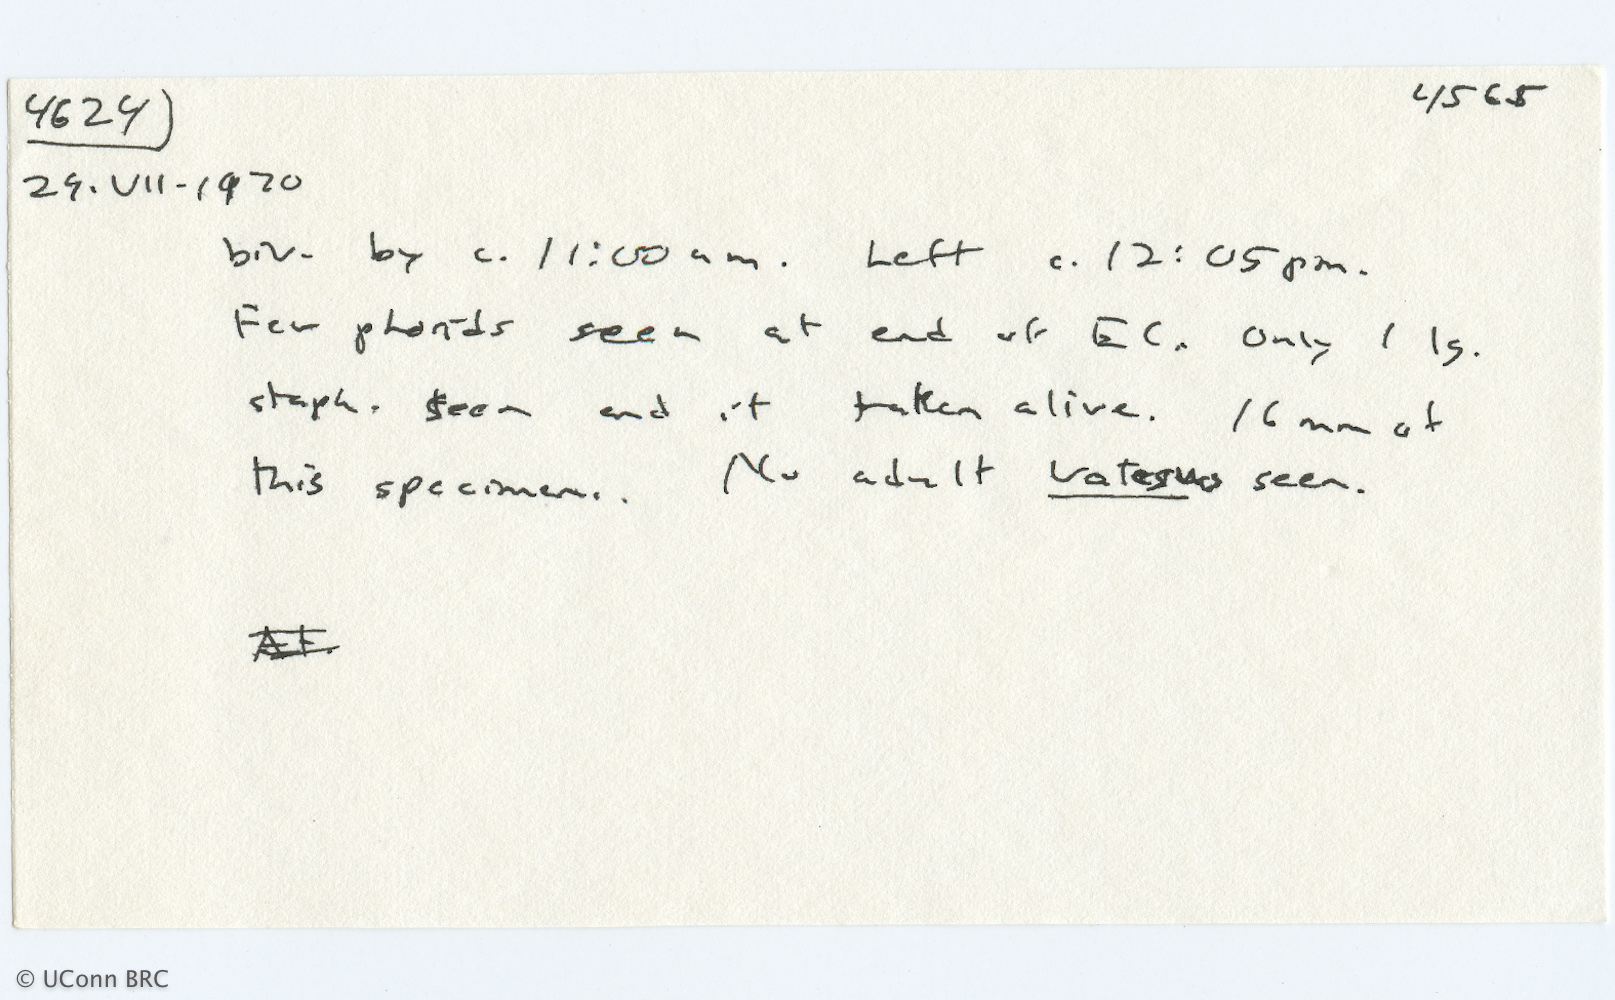 4624) 4565
29.VII-1970
biv. by c. 11:00 am. Left c. 12:05 pm.
Few phorids seen at end of EC. Only 1 lg.
staph. seen and it taken alive. 16 mm at
this specimen.. No adult Vatesus seen.
A.F.
© UConn BRC